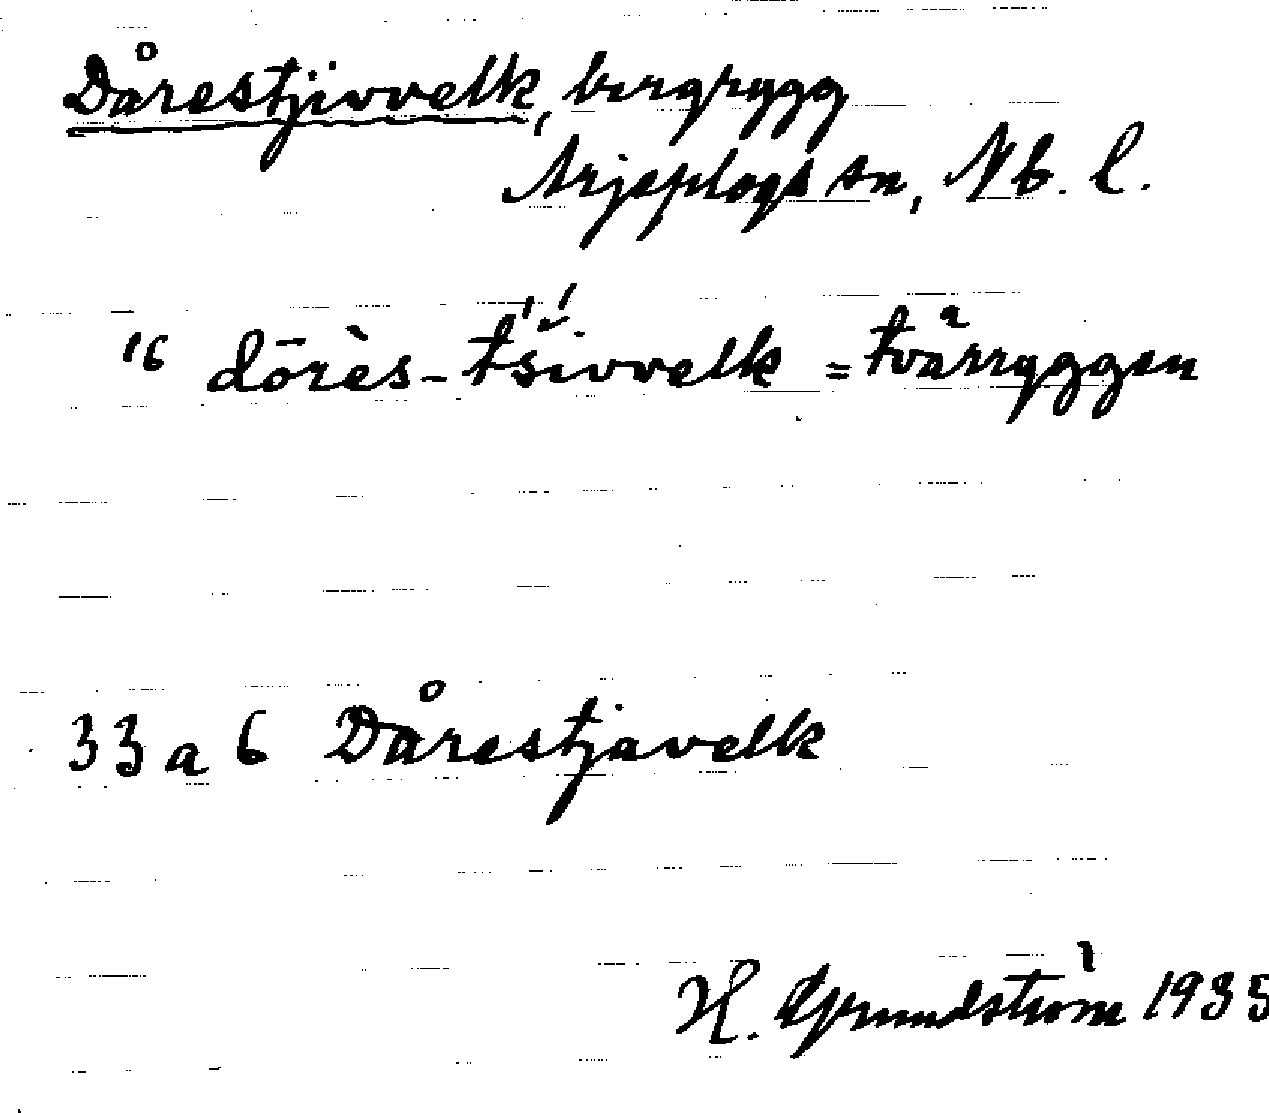 Dårestjivvelk, bergrygg
Arjeplogs sn, Nb. l.
16 dōrès-tš́ivvelk = tvärryggen
33 a 6 Dårestjavelk
H. Grundström 1935